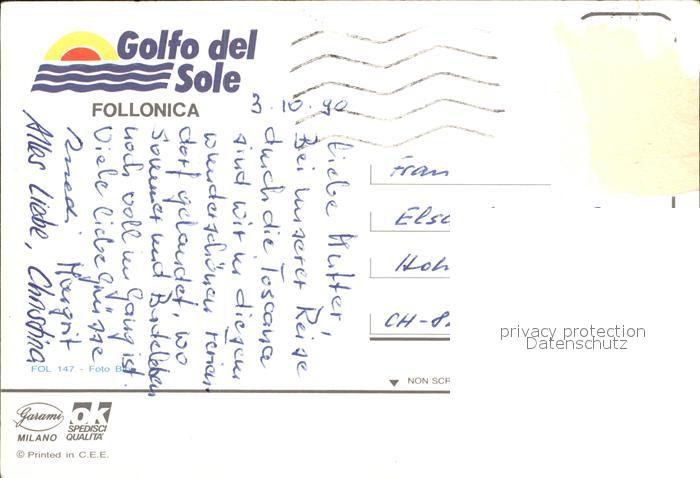 Golfo del
Sole
FOLLONICA
3.10.90
Liebe Mutter,
Bei unserer Reise
durch die Toscana
sind wir in diesem
wunderschönen Ferien
dorf gelandet, wo
Sommer und Badeleben
noch voll in Gang ist.
Viele liebe Grüsse
Ruedi Margrit
Alles Liebe, Christina
Frau
Elsa
CH-8
privacy protection
Datenschutz
FOL 147 - Foto
NON SCR
Garami
MILANO
OK
SPEDISCI
QUALITA'
© Printed in C.E.E.